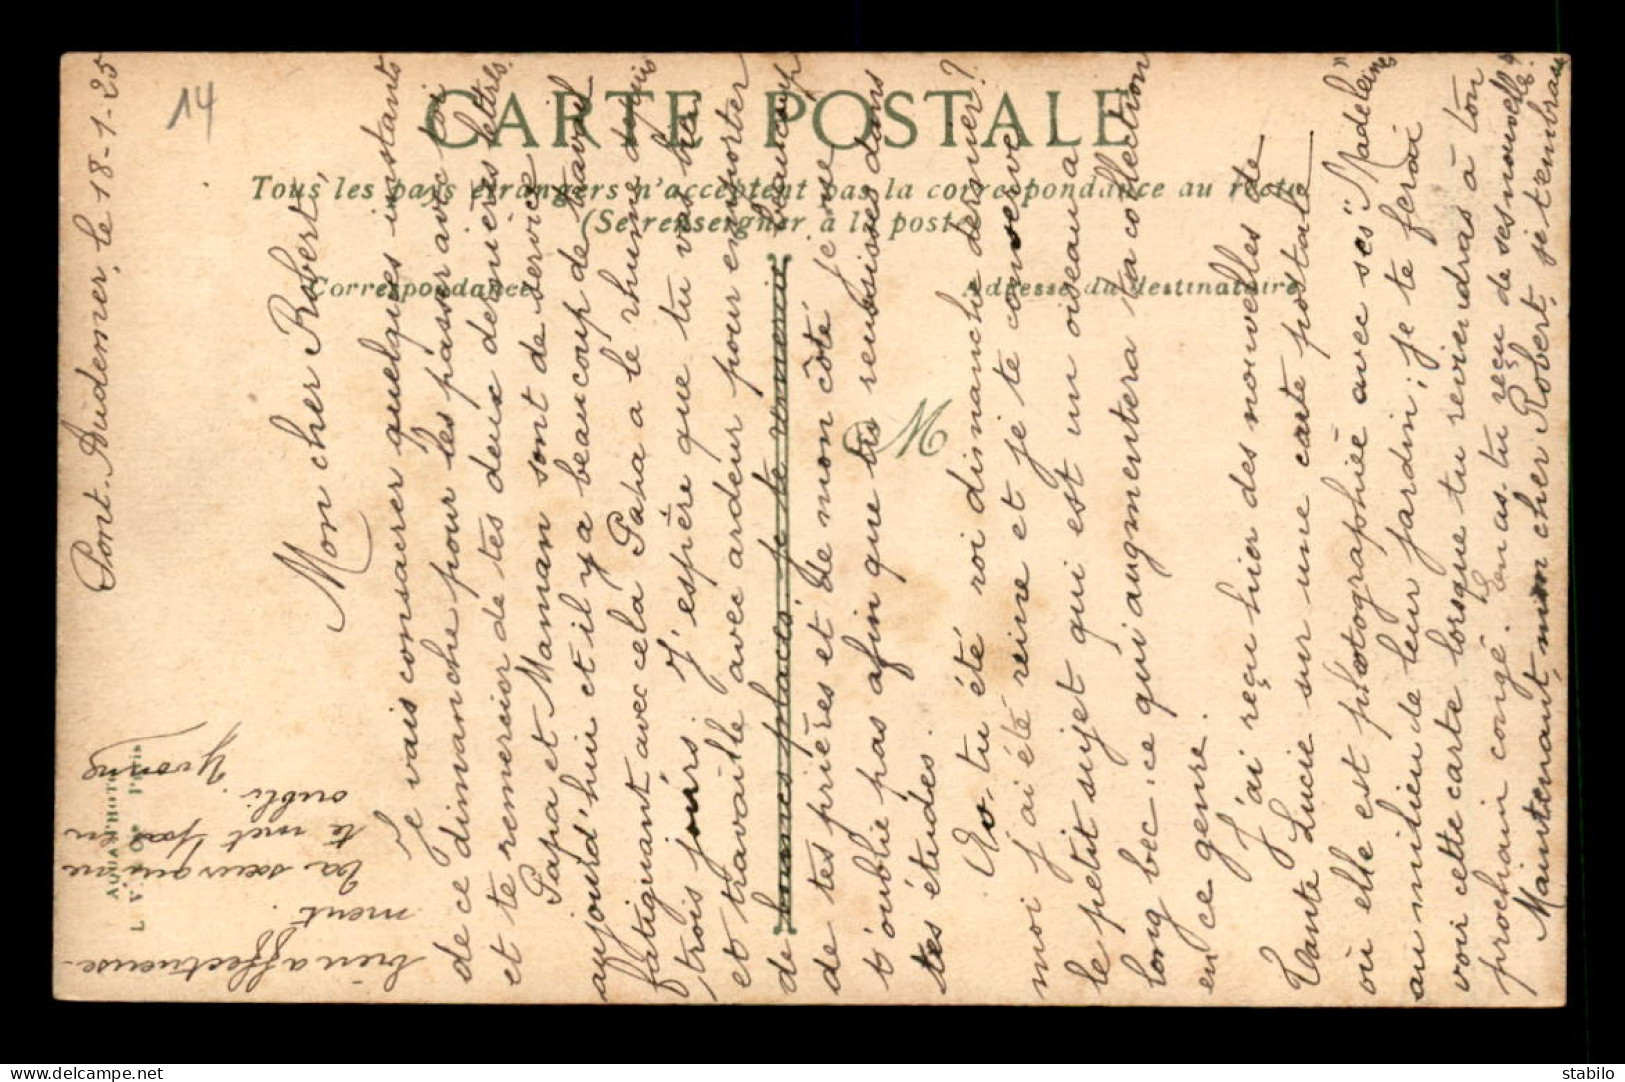 14
CARTE POSTALE
Tous les pays étrangers n'acceptent pas la correspondance au recto
(Se renseigner à la poste)
Correspondance
Adresse du destinataire
M
AQUA PHOTO
L. V. & Cie Paris
Pont-Audemer, le 18-1-25
Mon cher Robert,
Je vais consacrer quelques instants
de ce dimanche pour les passer avec toi
et te remercier de tes deux dernières lettres.
Papa et Maman sont de service
aujourd'hui et il y a beaucoup de travail
fatiguant avec cela Papa a le rhume depuis
trois jours. J'espère que tu vas bien
et travaille avec ardeur pour emporter
de bonnes places, je te remercie beaucoup
de tes prières et de mon côté je ne
t'oublie pas afin que tu réussisses dans
tes études.
As-tu été roi dimanche dernier?
moi j'ai été reine et je te conserve
le petit sujet qui est un oiseau a
long bec: ce qui augmentera ta collection
en ce genre.
J'ai reçu hier des nouvelles de
Tante Lucie sur une carte postale
où elle est photographiée avec ses "Madeleines"
au milieu de leur jardin; je te ferai
voir cette carte lorsque tu reviendras à ton
prochain congé. Peut-être en as-tu reçu de ses nouvelles?
Maintenant, mon cher Robert, je t'embrasse
bien affectueuse-
ment.
Ta sœur qui ne
te met pas en
oubli.
Yvonne